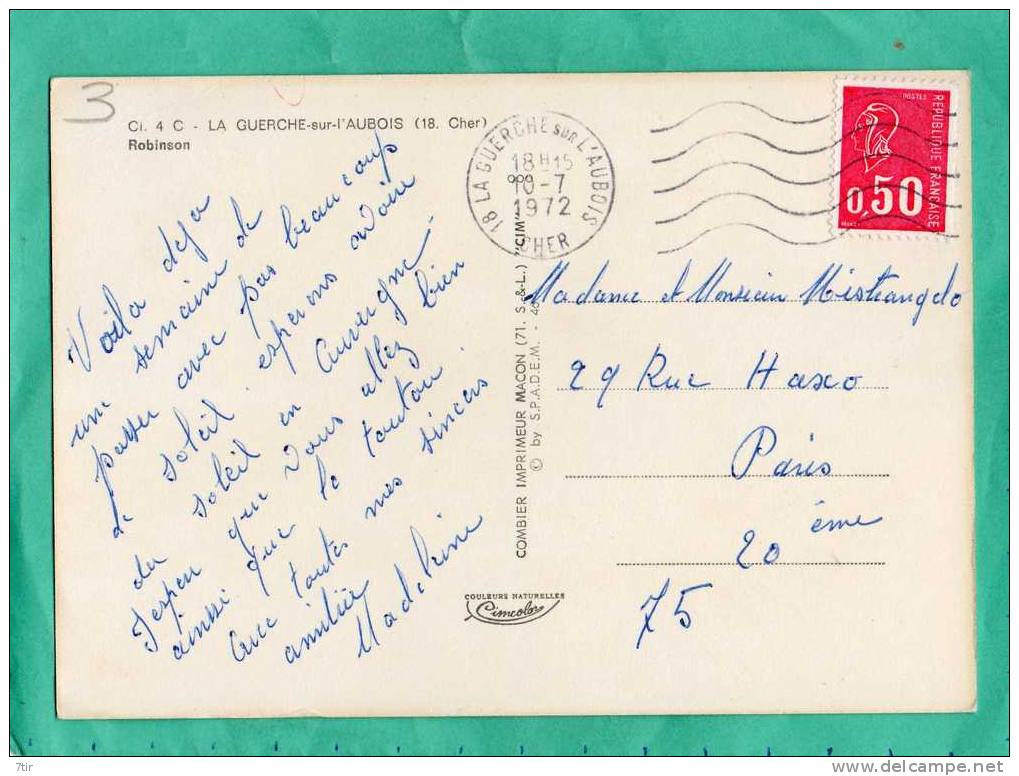 3
CI. 4 C - LA GUERCHE-sur-l'AUBOIS (18. Cher)
Robinson
18 LA GUERCHE SUR L'AUBOIS
18H15
10-7
1972
CHER
POSTES
REPUBLIQUE FRANÇAISE
0,50
Voila deja
une semaine de
passer avec pas beaucoup
de soleil esperons avoir
du soleil en Auvergne
J'espere que vous allez bien
ainsi que le toutou
avec toutes mes sinceres
amitiées
Madeleine
COMBIER IMPRIMEUR MACON (71. S.-&-L.) "CIM"
© by S.P.A.D.E.M. - 
COULEURS NATURELLES
Cimcolor
Madame et Monsieur Mistrangelo
29 Rue Haxo
Paris
20 ème
75
7tir
www.delcampe.net